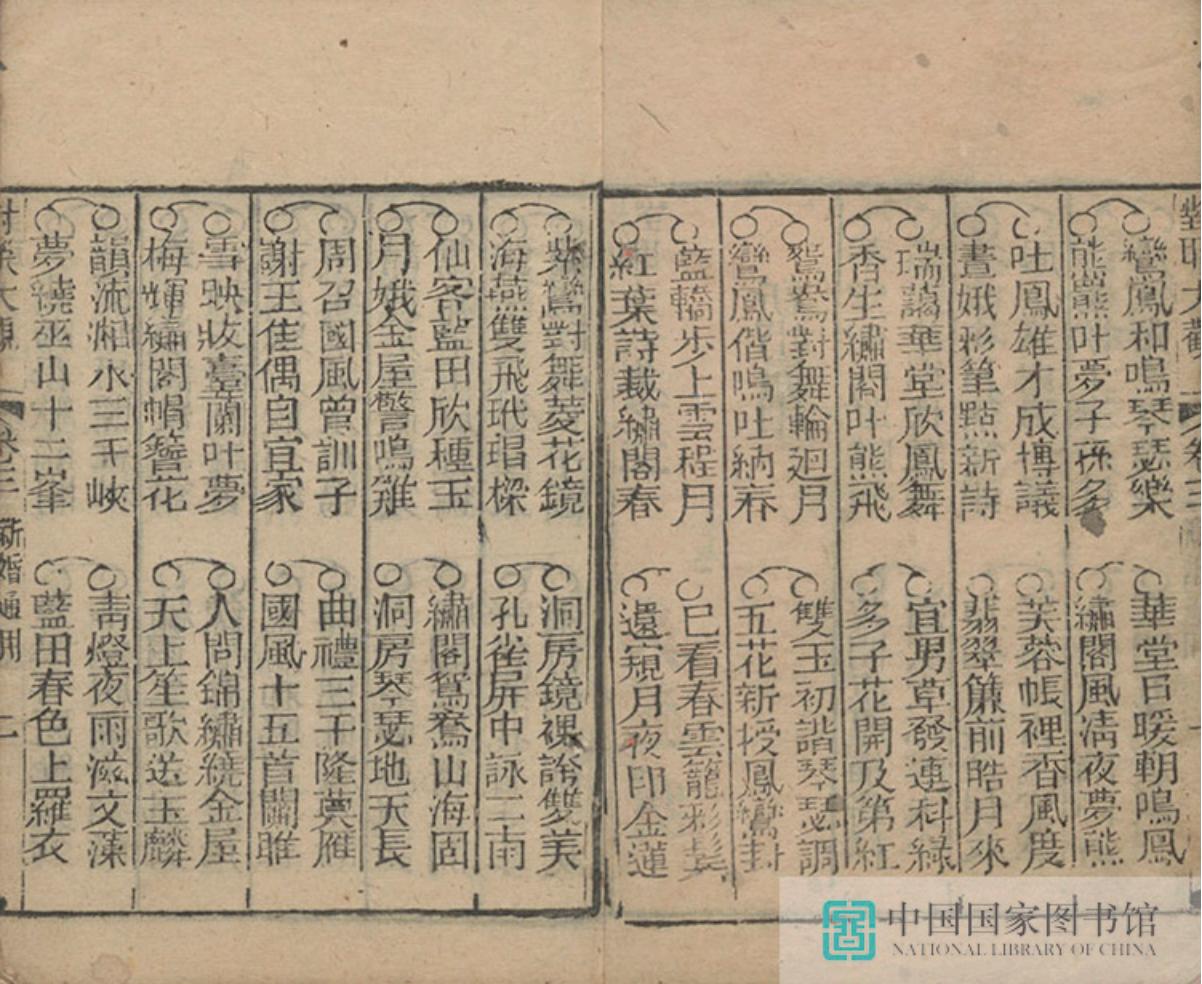 鸞鳳和鳴琴瑟樂
華堂日暖朝鳴鳳
熊羆叶夢子孫多
繡閣風清夜夢熊
吐鳳雄才成博議
芙蓉帳裡香風度
畫娥彩筆點新詩
翡翠簾前皓月來
瑞藹華堂欣鳳舞
宜男草發連科綠
香生繡閣叶熊飛
多子花開及第紅
鴛鴦對舞輪迴月
雙玉初諧琴瑟調
鸞鳳偕鳴吐納春
五花新授鳳鸞封
藍橋步上雲程月
已看春雲籠彩髮
紅葉詩裁繡閣春
還窺月夜印金蓮
紫鸞對舞菱花鏡
洞房鏡裡誇雙美
海燕雙飛玳瑁樑
孔雀屏中詠二南
仙客藍田欣種玉
繡閣鴛鴦山海固
月娥金屋警鳴雞
洞房琴瑟地天長
周召國風曾訓子
曲禮三千隆奠雁
謝王佳偶自宜家
國風十五首關雎
雪映妝臺蘭叶夢
人間錦繡繞金屋
梅輝繡閣帽簪花
天上笙歌送玉麟
韻流湘水三千峽
青燈夜雨滋文藻
夢繞巫山十二峯
藍田春色上羅衣
新婚通用
中国国家图书馆
NATIONAL LIBRARY OF CHINA